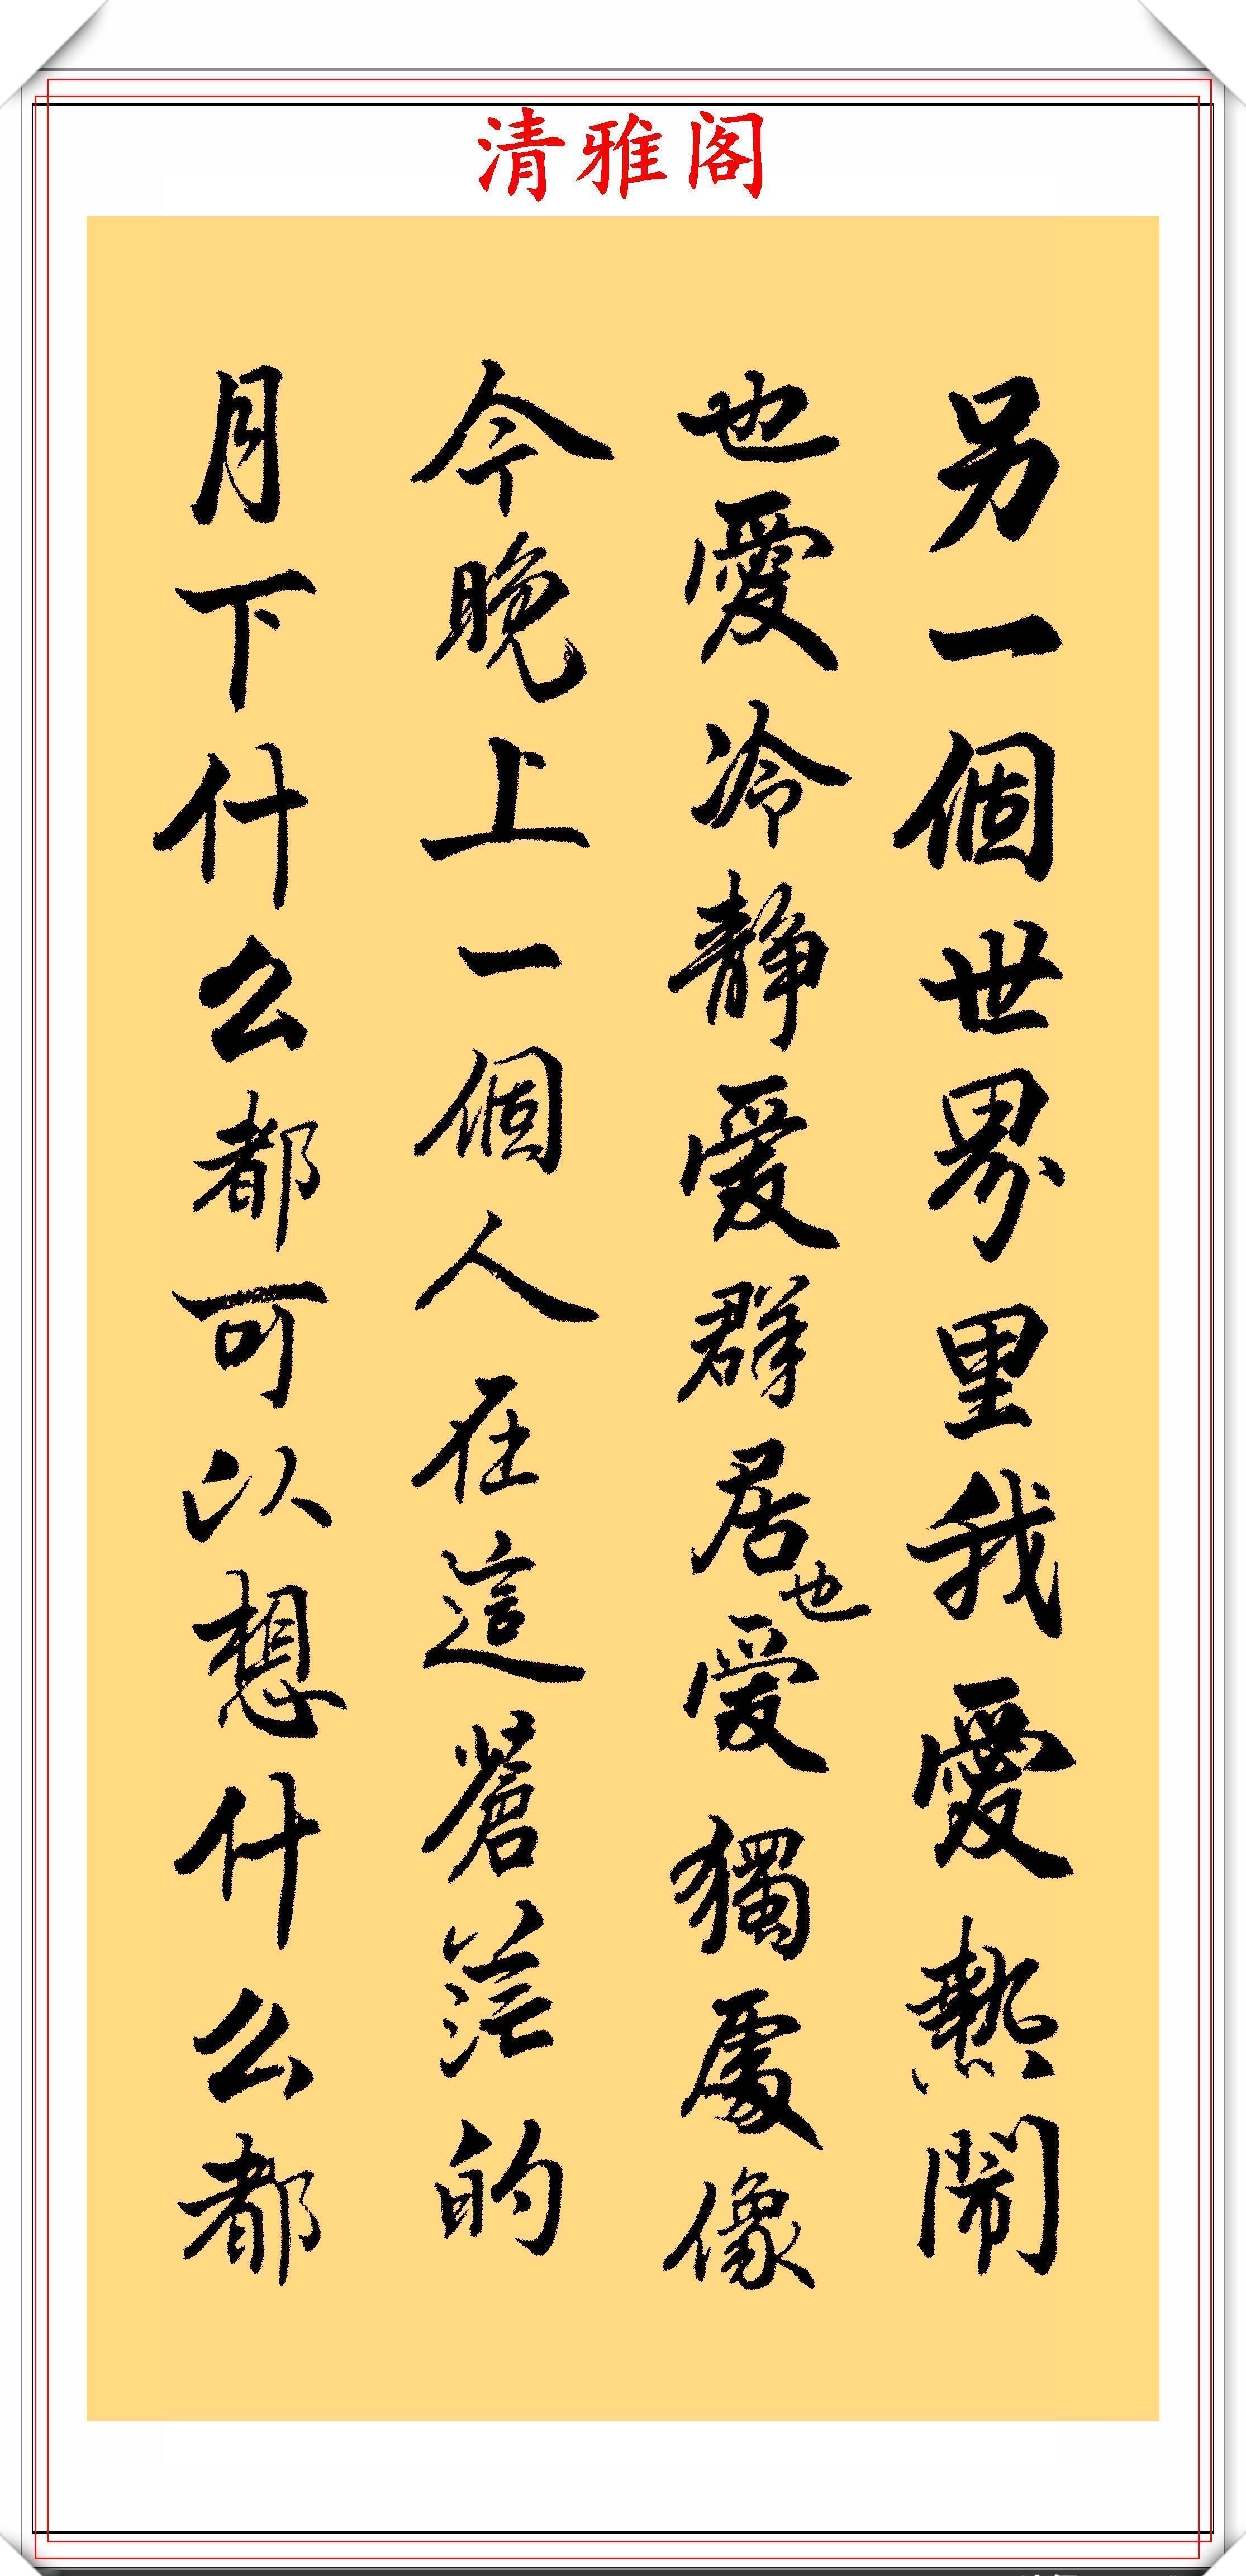 清雅阁
另一個世界里我愛熱鬧
也愛冷靜愛群居也愛獨處像
今晚上一個人在這蒼茫的
月下什么都可以想什么都